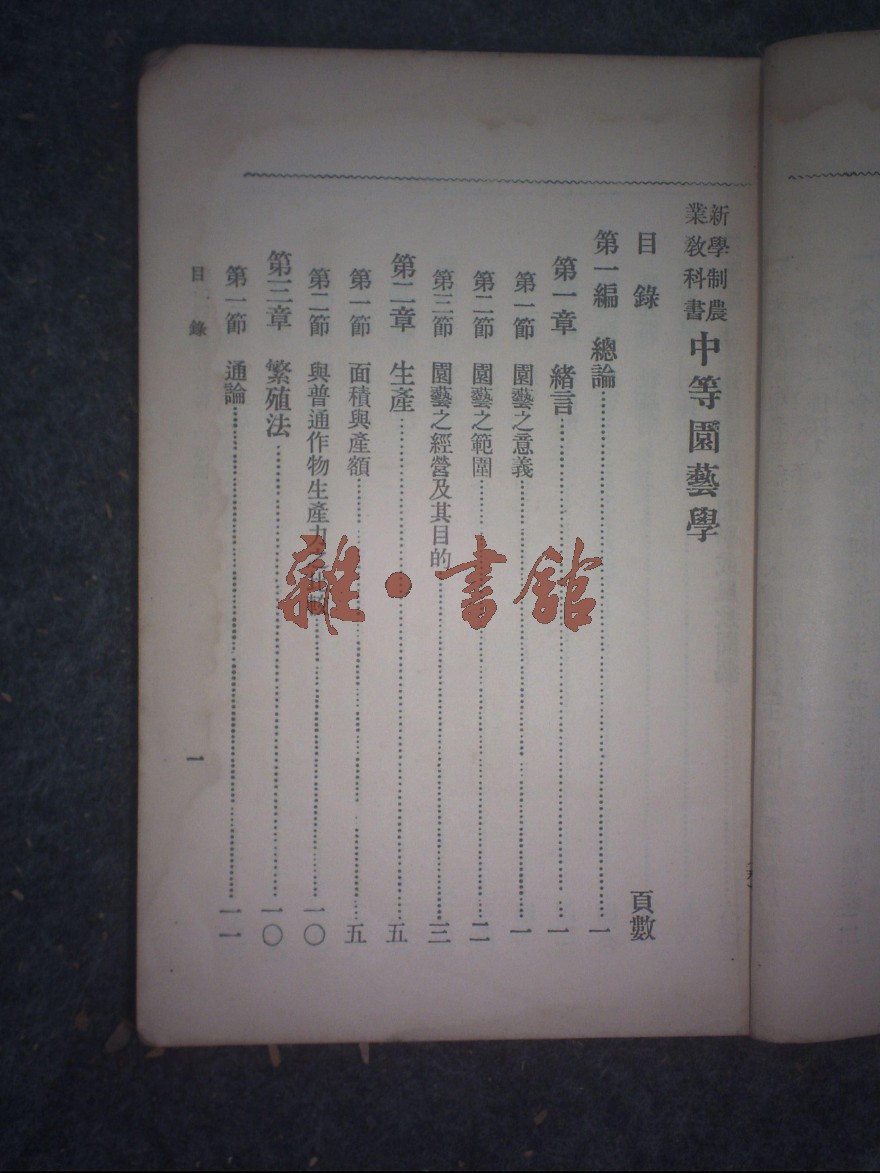 新學制農
業教科書
中等園藝學
目錄 頁數
第一編 總論 一
第一章 緒言 一
第一節 園藝之意義 一
第二節 園藝之範圍 二
第三節 園藝之經營及其目的 三
第二章 生產 五
第一節 面積與產額 五
第二節 與普通作物生產力 較 一〇
第三章 繁殖法 一〇
第一節 通論 一一
目錄
一
雜·書館